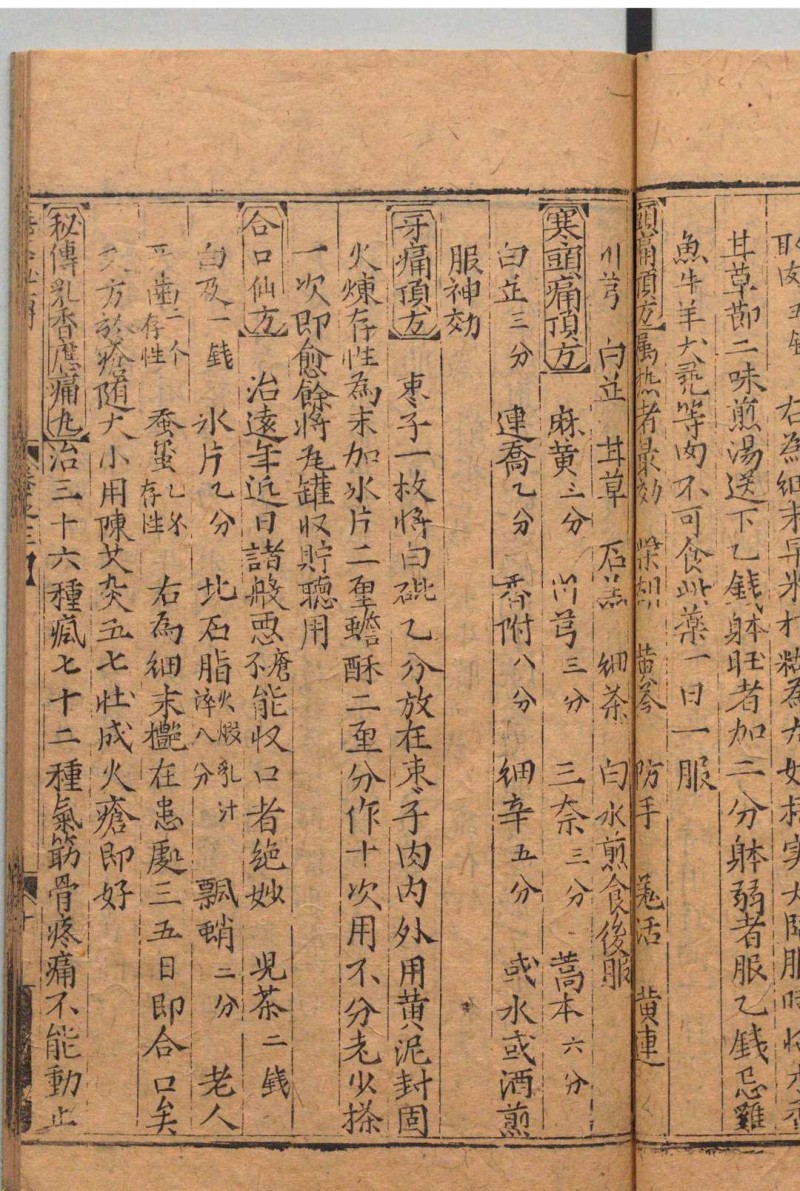 右為細末早米打糊為丸如梧實大臨服時將木香
甘草節二味煎湯送下乙錢躰旺者加二分躰弱者服乙錢忌雞
魚牛羊犬乳等肉不可食此藥一日一服
煎痛頂方屬热者最効 柴胡 黄芩 防手 羗活 黄連
川芎 白芷 甘草 石羔 細茶 白水煎食後服
寒頭痛頂方 麻黄三分 川芎三分 三奈三分 蒿本六分
白芷三分 連喬乙分 香附八分 細辛五分 或水或酒煎
服神効
牙痛頂方 枣子一枚将白砒乙分放在枣子肉内外用黄泥封固
火煉存性為末加氷片二厘蟾酥二厘分作十次用不分老少搽
一次即愈餘將瓦罐収貯聽用
合口仙方 治遠年近日諸般惡瘡不能収口者绝妙 児茶二錢
白及一錢 氷片乙分 北石脂火煅乳汁淬八分 飄蛸二分 老人
牙齒二个存性 蚕蛋乙分存性 右為細末摻在患處三五日即合口矣
又方於瘡随大小用陳艾灸五七壯成火瘡即好
秘傳乳香應痛丸治三十六種瘋七十二種氣筋骨疼痛不能動止